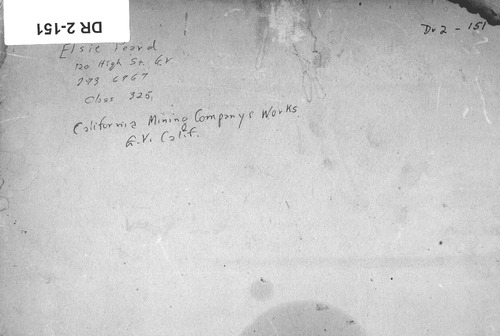 DR 2-151
Dr 2 - 151
Elsie
120 High St. G.V
273 6967
Class 325.
California Mining Companys Works.
G.V. Calif.